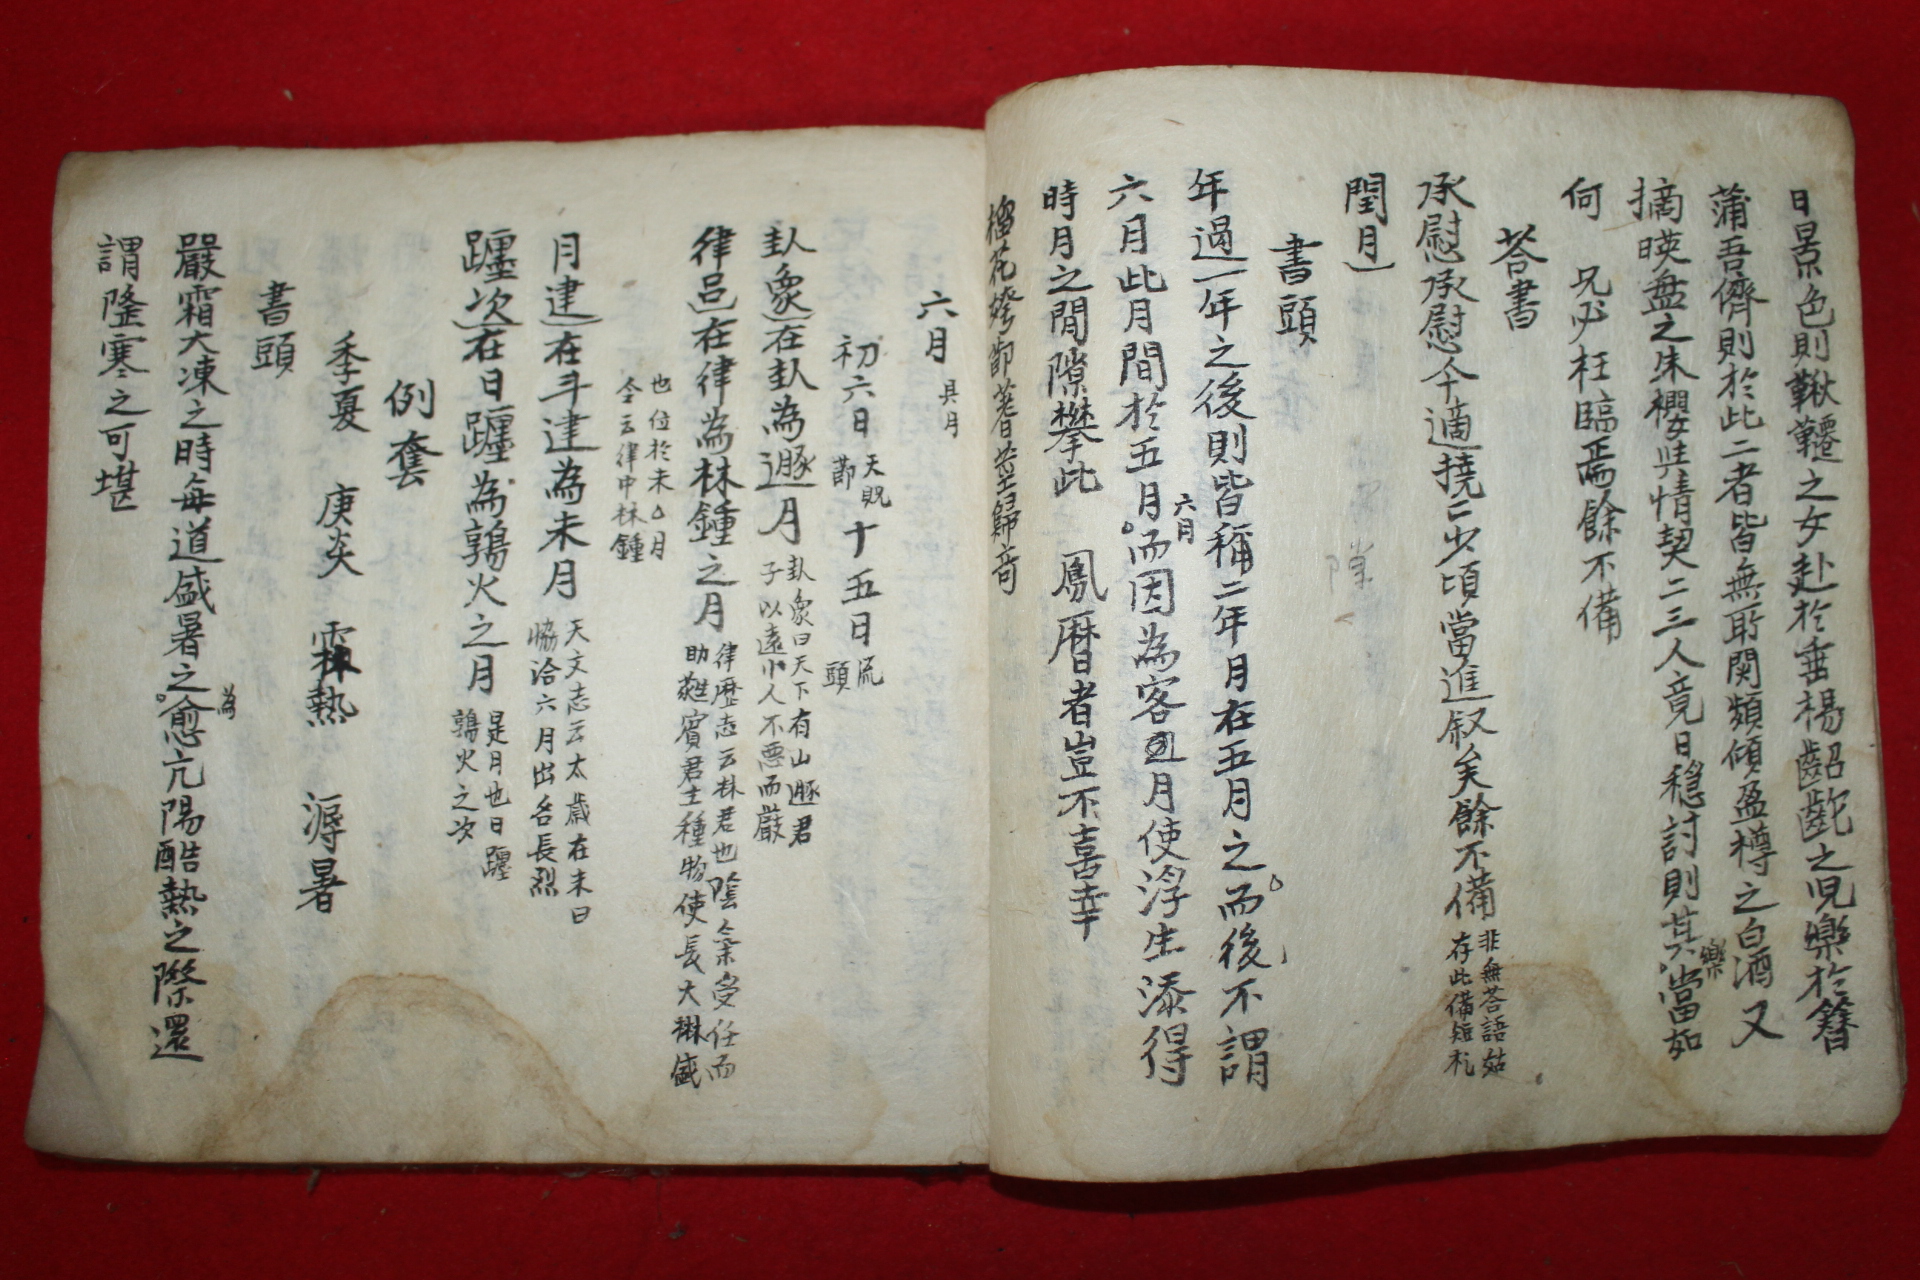 日景色則鞦韆之女赴於垂楊齠齕之児樂於簪
蒲吾儕則於此二者皆無所関頻傾盈樽之白酒又
摘暎盘之朱櫻与情契二三人竟日穩討則其樂當如
何 兄必枉臨焉餘不備
答書
承慰承慰今適撓撓少頃當進叙矣餘不備 非無荅語姑
存此備短札
閏月
書頭
年過一年之後則皆稱二年月在五月之而後不謂
六月此月間於五月六月而因為客月使浮生添得
時月之間隙攀此 鳳曆者豈不喜幸
榴花
六月 具月
初六日 天貺
節 十五日 流
頭
卦象在卦為遯月 卦象曰天下有山遯君
子以遠小人不悪而嚴
律呂在律為林鍾之月 律歷志云林君也陰氣受任而
助蕤賓君主種物使長大楙盛
也位於未月
令云律中林鍾
月建在斗建為未月 天文志云太歲在未曰
協洽六月出名長烈
躔次在日躔為鶉火之月 是月也日躔
鶉火之次
例套
季夏 庚炎 霖熱 溽暑
書頭
嚴霜大凍之時每道盛暑之為愈亢陽酷熱之際還
謂隆寒之可堪